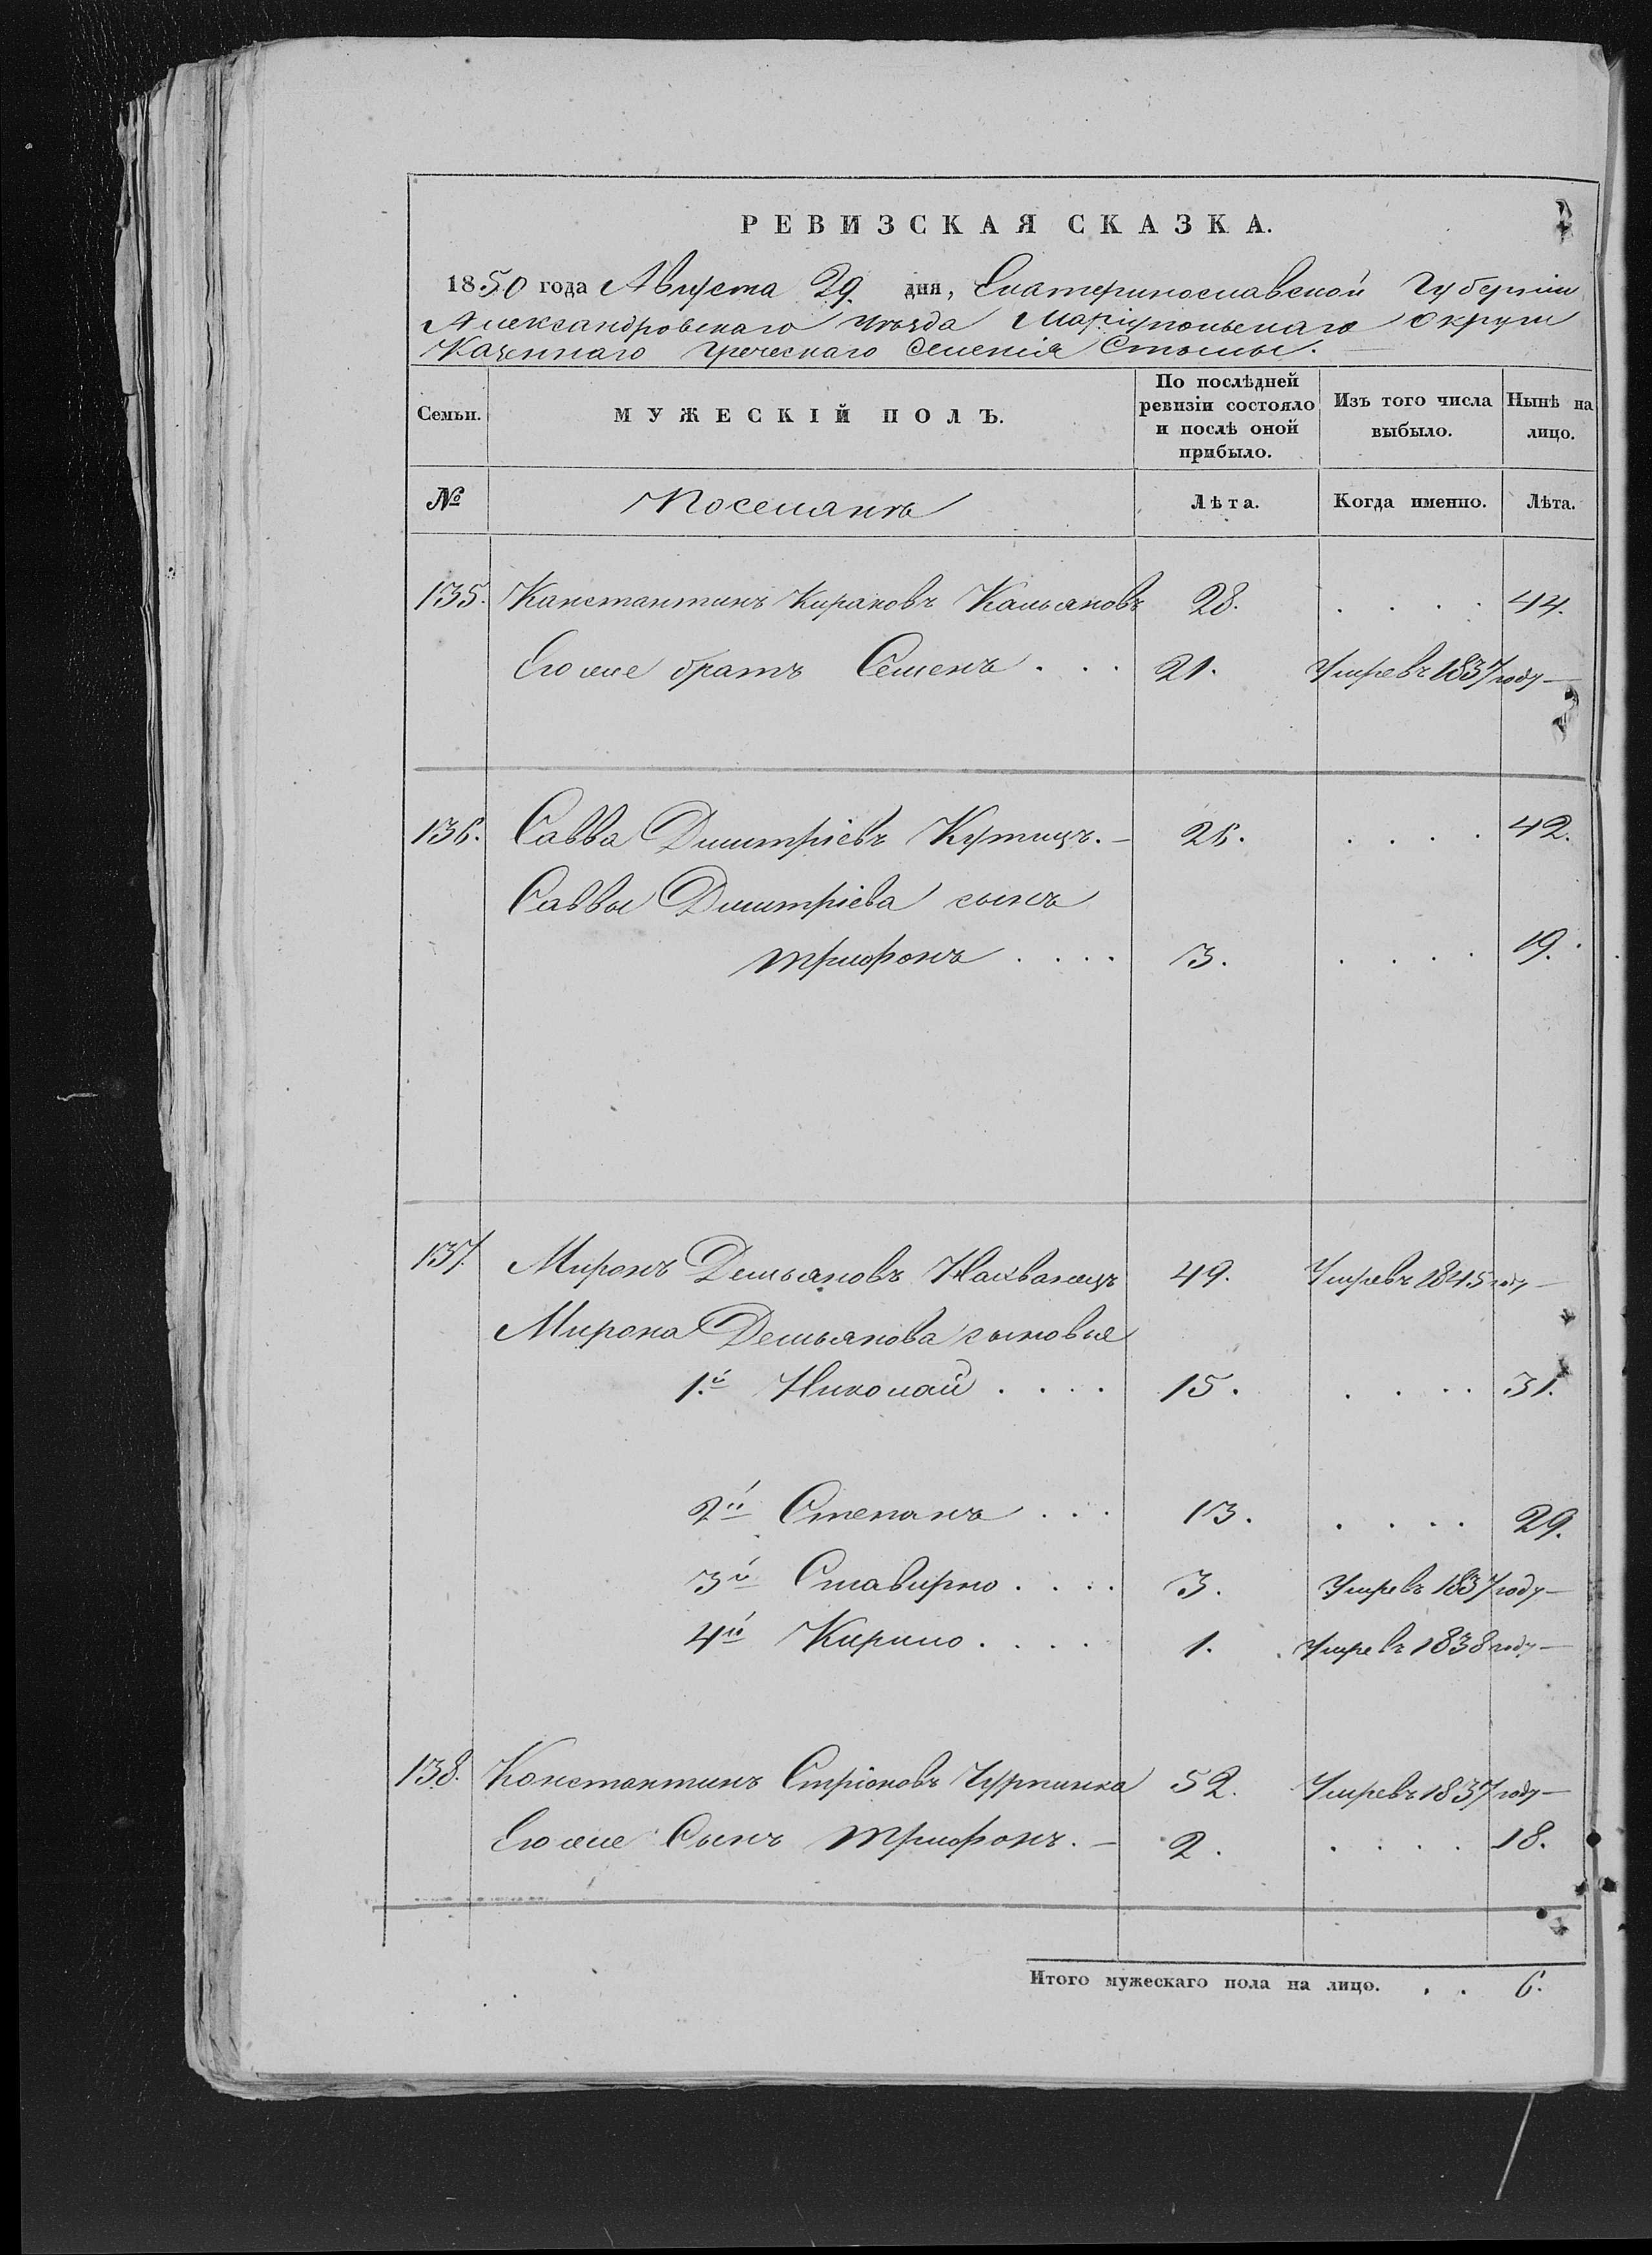 РЕВИЗСКАЯ СКАЗКА.
1850 года Августа 29. дня, Екатеринославской Губернии
Александровскаго уѣзда Маріупольскаго Округи
Казеннаго Греческаго Селенія Стылы.
Семьи. МУЖЕСКІЙ ПОЛЪ. По послѣдней ревизіи состояло и послѣ оной прибыло. Изъ того числа выбыло. Нынѣ на лицо.
№ Поселянъ Лѣта. Когда именно. Лѣта.
135. Канстантинъ Кираковъ Кальяновъ 28. . . . . 44.
Его же братъ Семенъ . . . 21. Умре въ 1837 году —
136. Савва Димитріевъ Купицъ. — 26. . . . . 42.
Саввы Димитріева сынъ
Трифонъ . . . . 3. . . . . 19.
137. Миронъ Демьяновъ 49. Умре въ 1845 году —
Мирона Демьянова сыновья
1.й Николай . . . . 15. . . . . 31.
2й Степанъ . . . 13. . . . . 29.
3й Ставирно . . . . 3. Умре въ 1837 году —
4й Кирило . . . . 1. Умре въ 1838 году —
138. Константинъ Стріоновъ Чурпинка 52. Умре въ 1837 году —
Его же Сынъ Трифонъ. — 2. . . . . 18.
Итого мужескаго пола на лицо. . . 6.